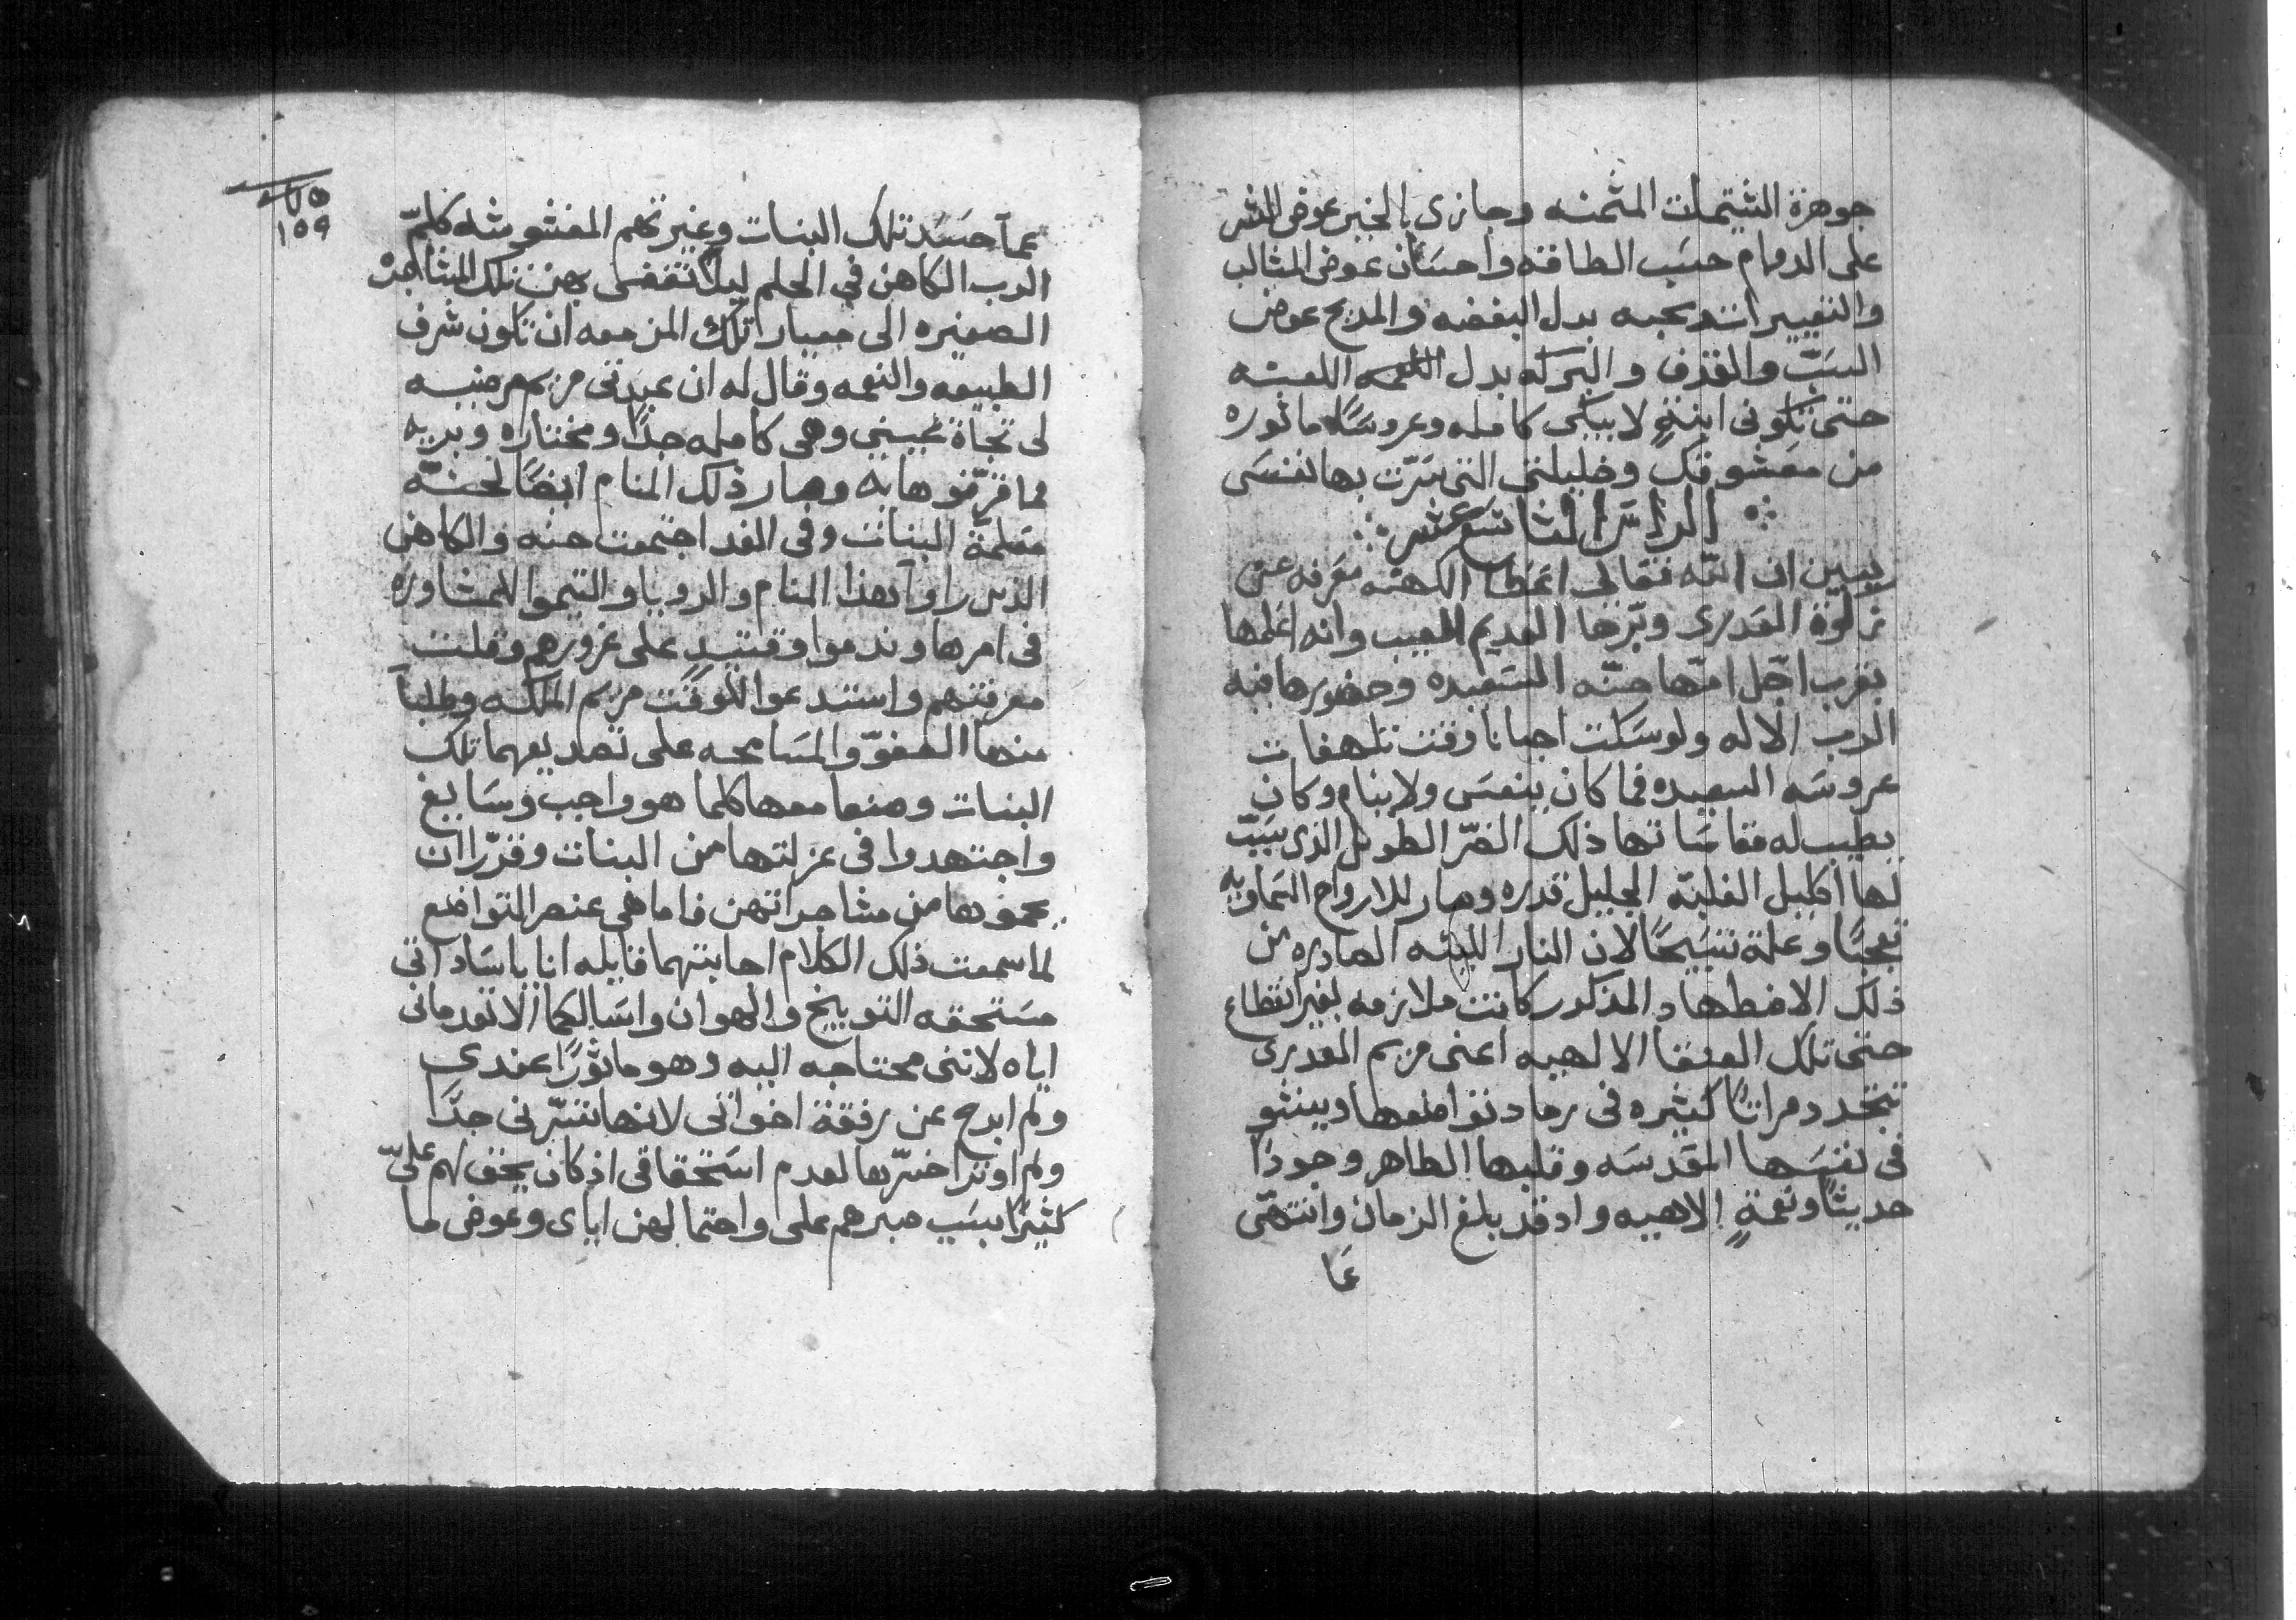 جوهرة الشتيمات المثمنه وجازى بالخير عوض الشر
على الدوام حسَب الطاقه واحسَان عوض المثالب
والتغييرات ومحبه بدل البغضه والمديح عوض
السَبّ والقذف والبركه بدل اللعنه
حتى تكونى ابنةٍ لايبكى كامله وعروسًا ماثوره
من معشوقك وخليلتى التى سَرّت بها نفسَى
الراسَ الثاسع عشر
يبين ان اللّه تعالى اعطا الكهنه معرفه عن
نزاهة العذرى وبرّها العديم المعيب وانه اعلمها
بقرب اجل امّها حنّه السَعيده وحضورها فيه
الرب الاله ولو سَكت احيانا وقت تلهفات
عروسَه السعيده فما كان ينعسَ ولا ينام وكان
يطيب له مقاسَاتها ذلك الضرّ الطويل الذى سَببّ
لها اكليل الغلبّه الجليل قدره وصار للارواح السَماويه
تعجبًا وعلة تسَبيحًا لان النار البيته الصادره من
ذلك الاضطهاد المذكور كانت ملازمه بغير انقطاع
حتى تلك العنقا الالهيه اعنى مريم العذرى
تتجدد مراتًا كثيره فى رماد تواضعها وينشو
فى نفسَها المقدسَه وقلبها الطاهر وجودًا
حديثًا ونعمةٍ الاهيه واد قد بلغ الزمان وانتهى
عَا
١٥٩
عمآ حسَدت تلك البنات وغيرتهم المغشوشه كلمّ
الرب الكاهن فى الحلم ليلًا تنفسى بهن تلك المشاجره
الصغيره الى معيار تلك المزمعه ان تكون شرف
الطبيعه والنعمه وقال له ان عبدتى مريم مرضيه
لى تجاة عينيى وهى كامله جدًا ومختاره وبريه
مما قرّفوها به وصار ذلك المنام ايضًا لحنّه
معلمّة البنات وفى الغد اجتمعت حنه والكاهن
الذين راوآ هذا المنام والرويا والتيموا للمشاوره
فى امرها وندموا وقتيدٍ على غرورهم وقلت
معرفتهم واستدعوا للوقت مريم الملكه وطلبآ
منها الصفوّ والمسَامحه على تصديقهما تلك
البنات وصنعا معها كلما هو واجب وسَايغ
واجتهدوا فى عزلتها من البنات وقرّرا ان
يحموها من مشاجراتهن فاما هى عنصر التواضع
لما سمعت ذلك الكلام اجابتهما قايله انا ياسَاداتى
مسَتحقه التوبيخ والهوان واسَالكما الا تعدمانى
اياه لاننى محتاجه اليه وهو ماثورًا عندى
ولم ابرح عن رفقة اخواتى لانها تسَرّنى جدًا
ولم اوثر اخسَرّها لعدم اسَتحقاقى اذ كان يحق لهم علىّ
كثيرًا بسَبب صبرهم على واحتمالهن اياى وعوض ما